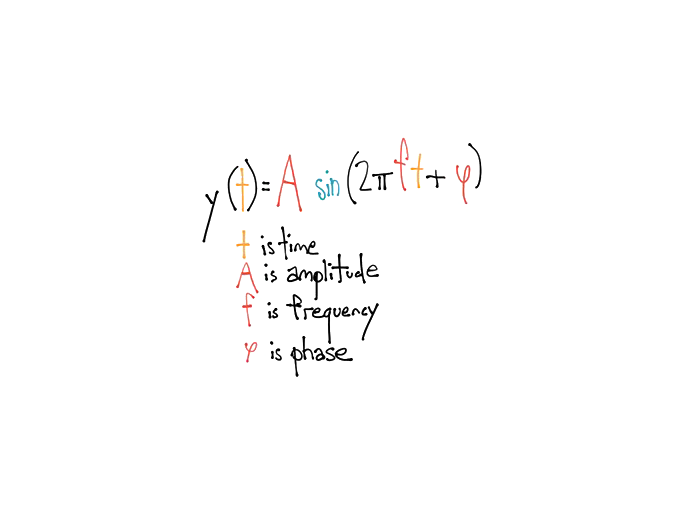 y(t)= A sin(2πft + φ)
t is time
A is amplitude
f is frequency
φ is phase